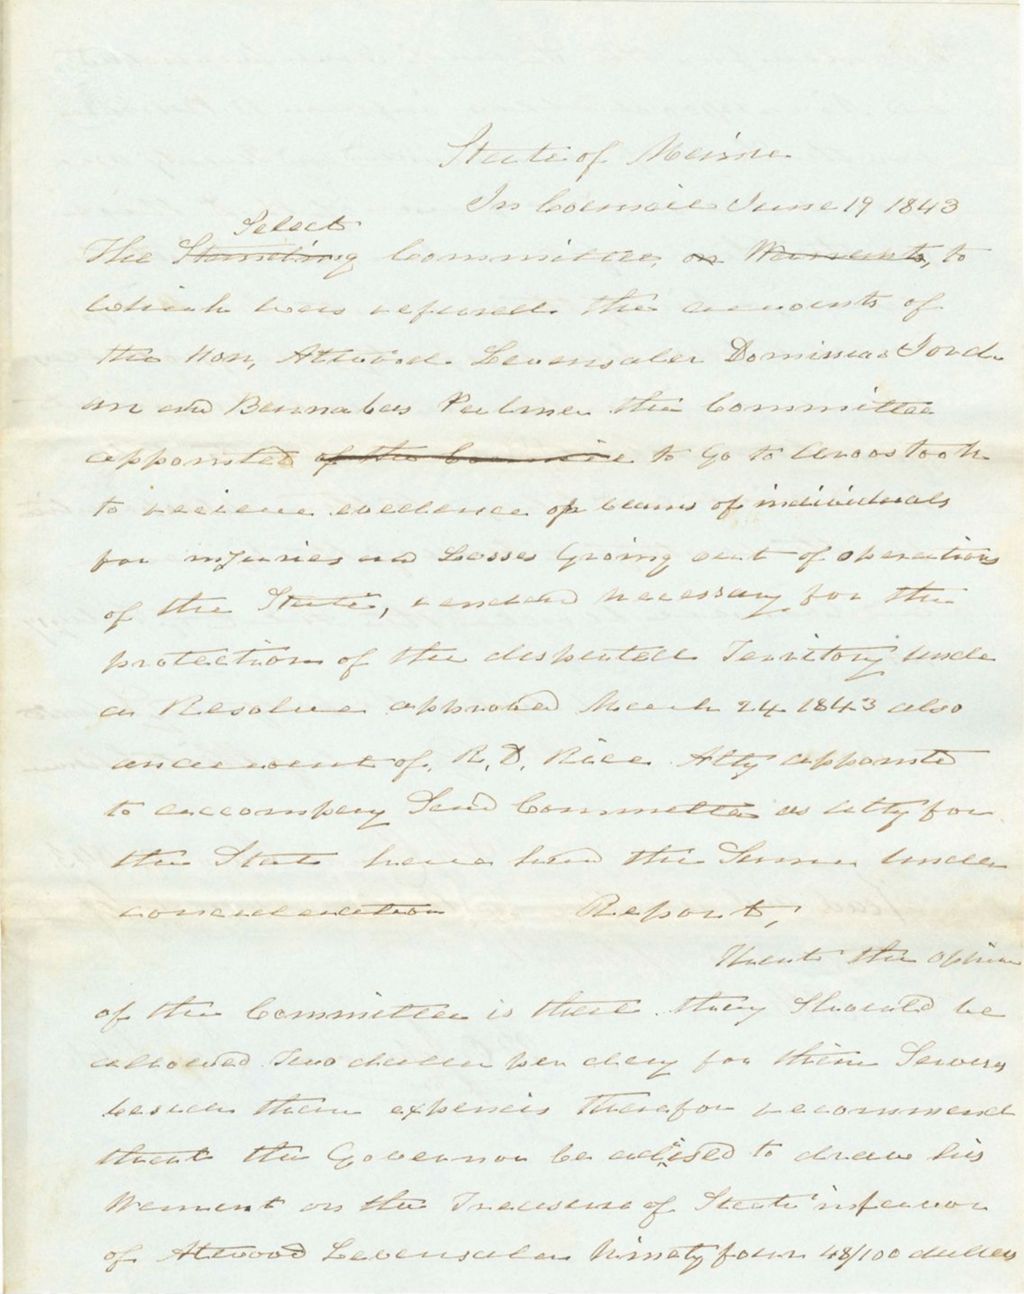 State of Maine
In Council June 19 1843
Select
The Standing Committee, on Warrants, to
which was refered the accounts of
the Hon, Atwood Levensaler Dominicus Jord
an and Barnabas Palmer the Committee
appointed of the Council to go to Aroostook
to recieve evedence of claims of individuals
for injuries and Losses Groing out of operations
of the State, rendard necessary for the
protection of the disputed Territory under
a Resolve approved March 24 1843 also
an account of R. D. Rice Atty appointed
to accompany Said Committee as Atty for
the State have had the Same under
concideration Report,
That the opinion
of the Committee is that they Should be
allowed Two dollar per day for their Servis
besides their expencis Therefor recommend
that the Governor be advised to draw his
Warrent on the Treasurer of State in favor
of Atwood Levensaler Ninety four 48/100 dollars